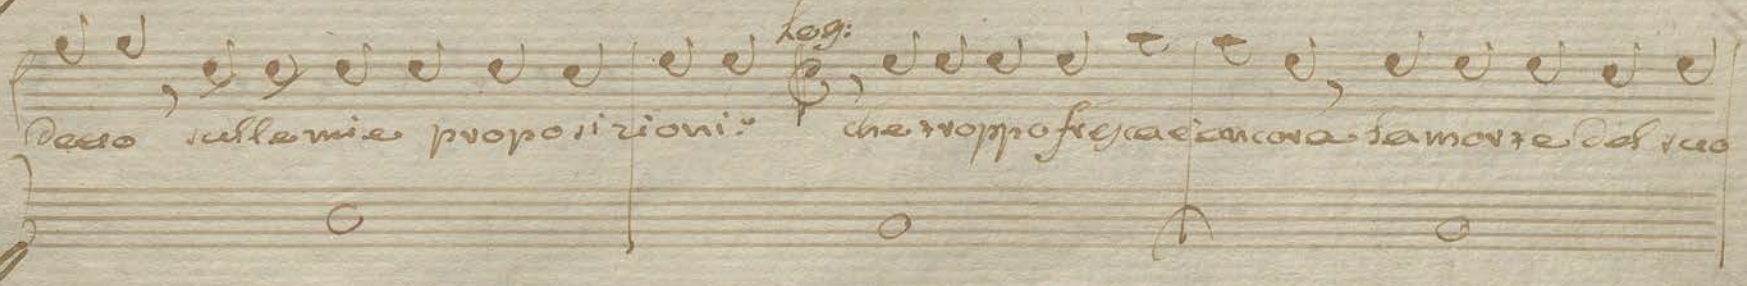 Log:
deuo sulle mie proposizioni: che troppo fresca è ancora la morte del suo